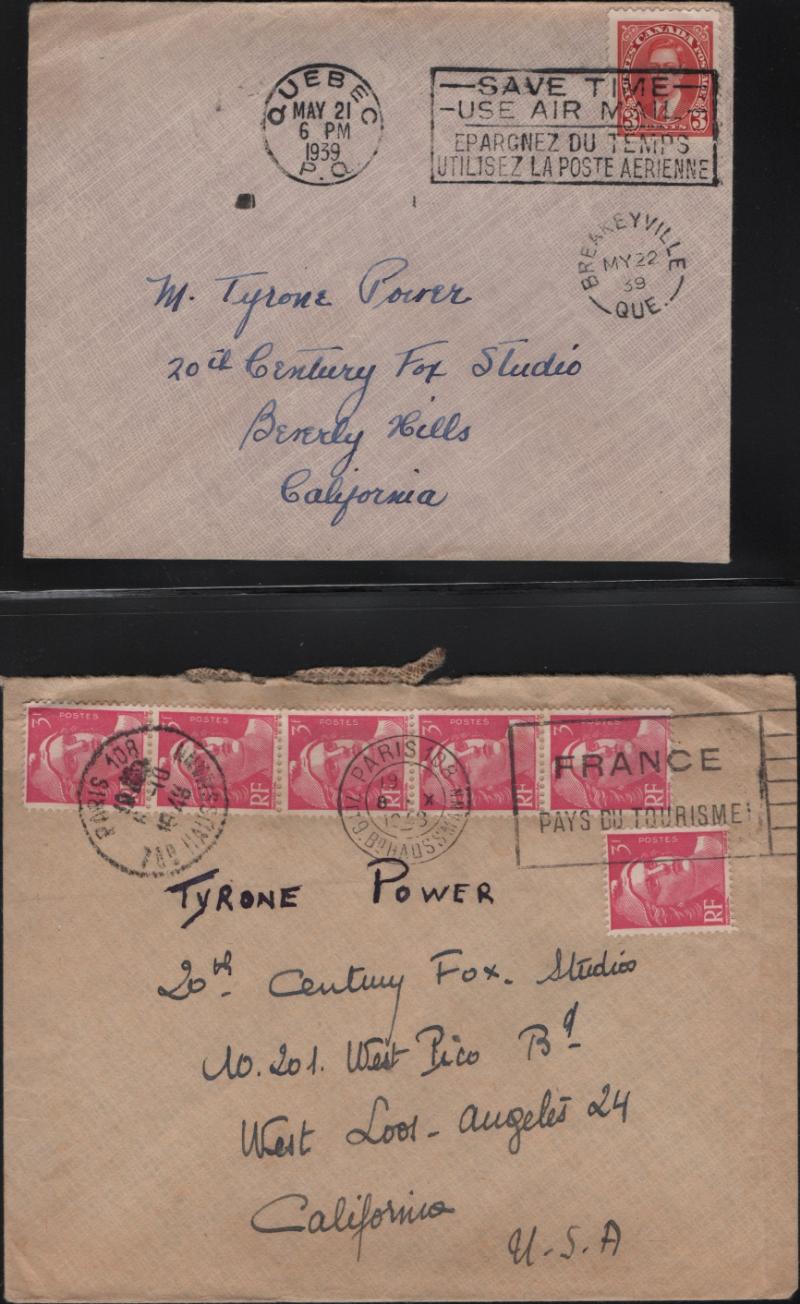 POSTES CANADA POSTAGE
3 CENTS 3
QUEBEC
MAY 21
6 PM
1939
P.Q.
SAVE TIME
USE AIR MAIL
EPARGNEZ DU TEMPS
UTILISEZ LA POSTE AERIENNE
BREAKEYVILLE
MY 22
39
QUE.
M. Tyrone Power
20th Century Fox Studio
Beverly Hills
California
3F POSTES RF
3F POSTES RF
3F POSTES RF
3F POSTES RF
3F POSTES
PARIS 108
15 45
PARIS 108
19
8 X
Bd HAUSSMANN
FRANCE
PAYS DU TOURISME!
3F POSTES RF
TYRONE POWER
20th Century Fox. Studios
10.201. West Pico Bd
West Loos-Angelès 24
California
U.S.A